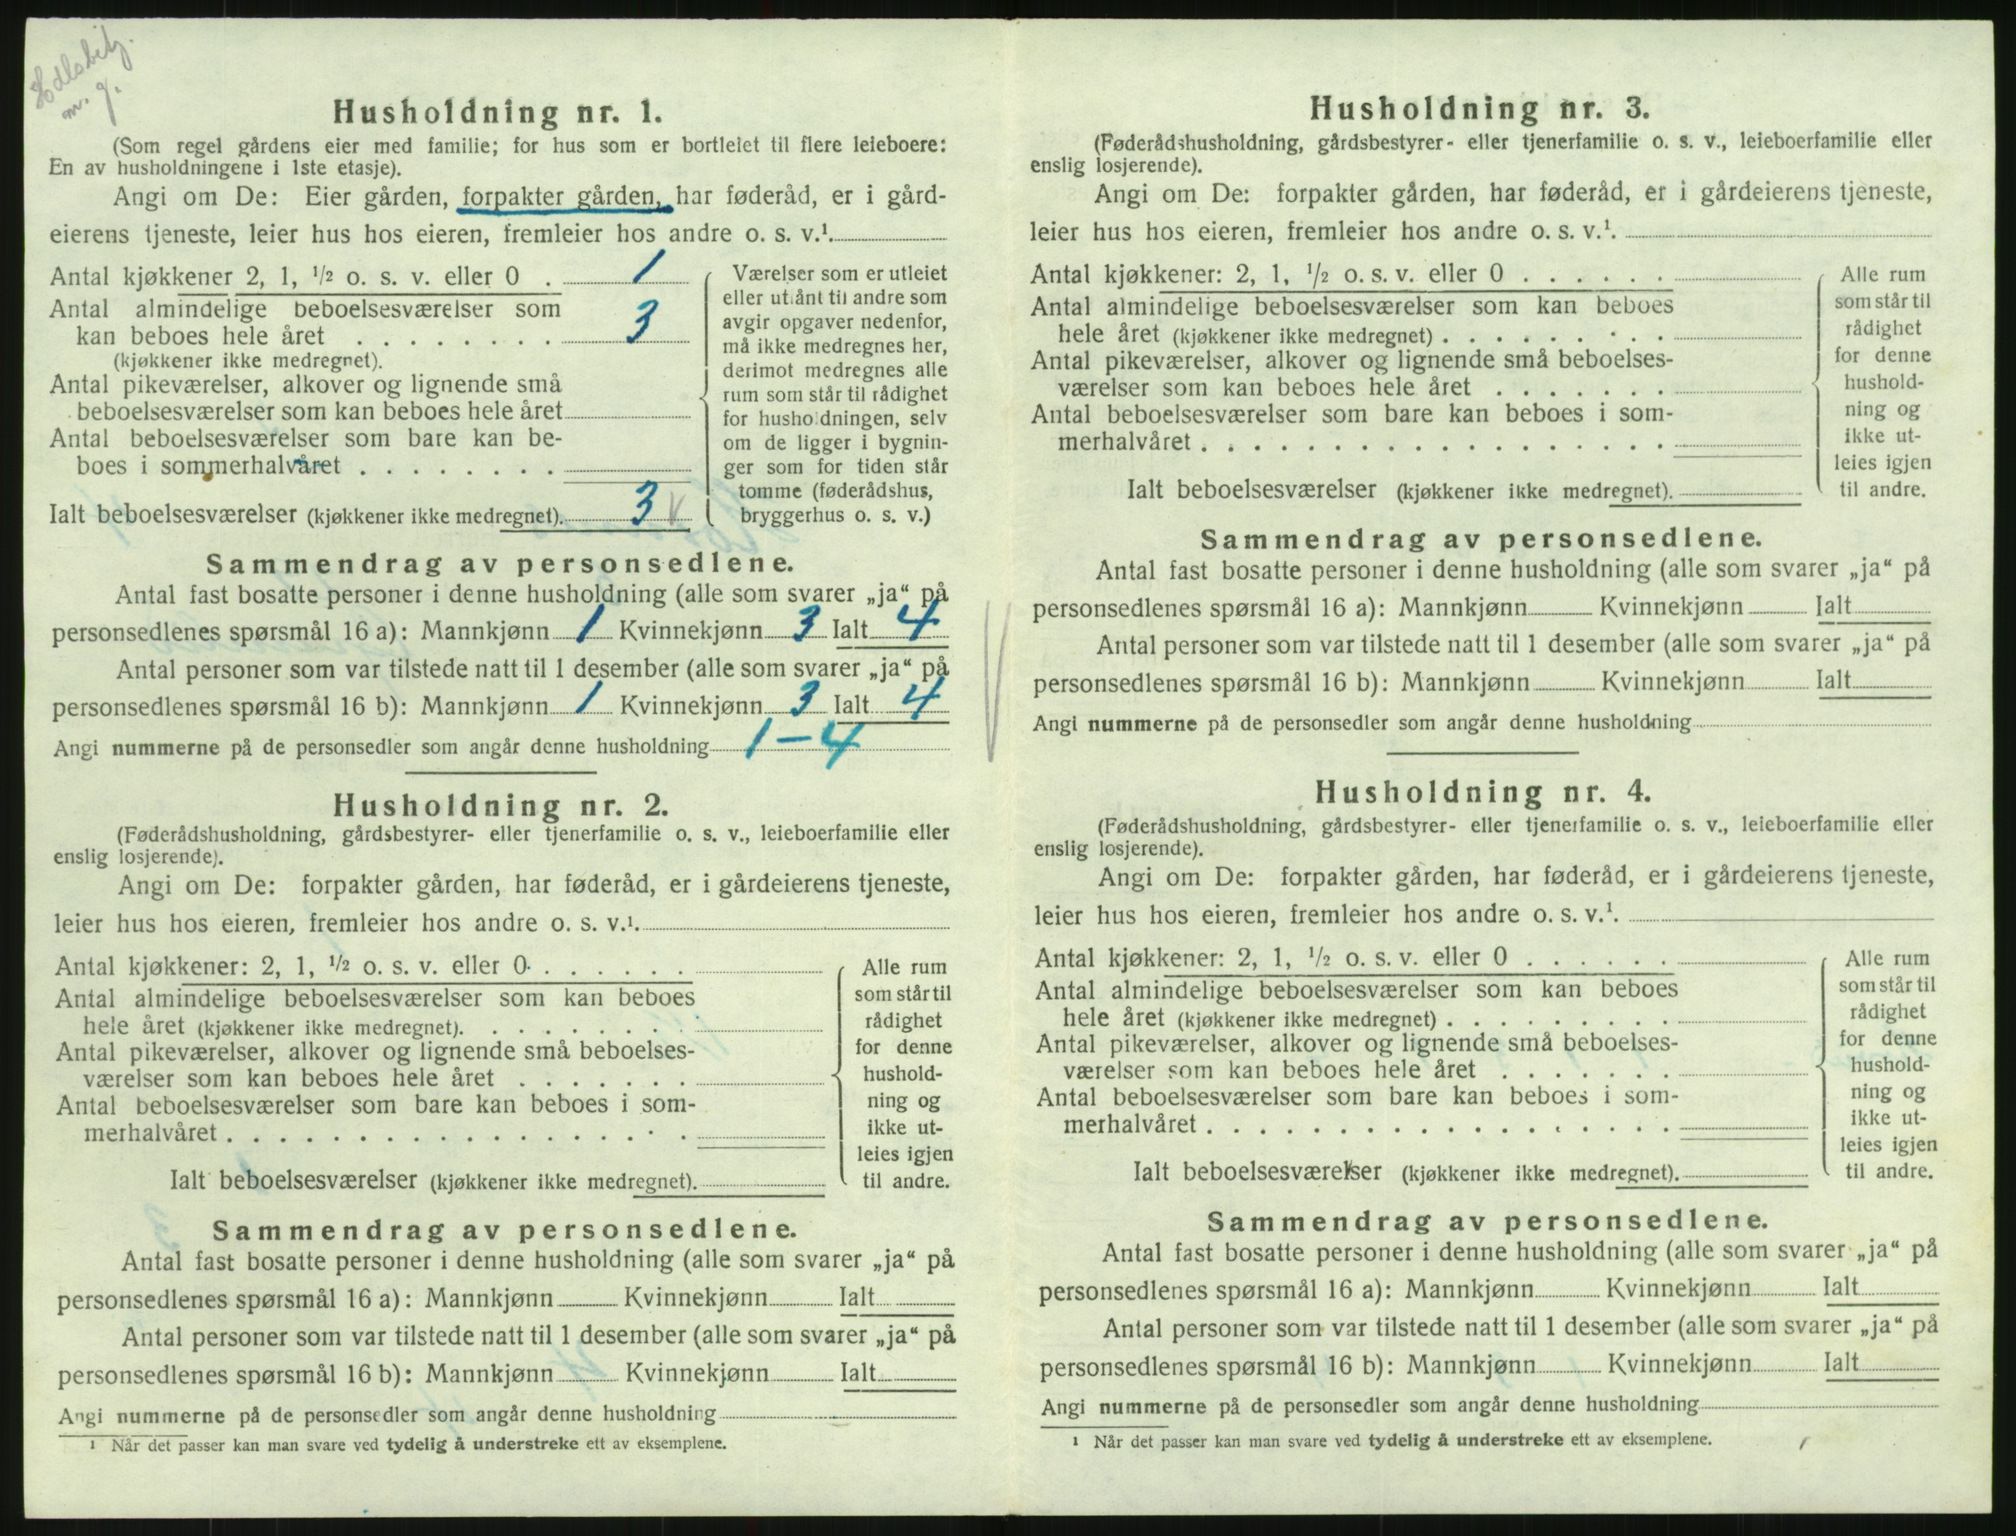 m. g.
Husholdning nr. 1.
(Som regel gårdens eier med familie; for hus som er bortleiet til flere leieboere:
En av husholdningene i 1ste etasje).
Angi om De: Eier gården, forpakter gården, har føderåd, er i gård-
eierens tjeneste, leier hus hos eieren, fremleier hos andre o. s. v.¹.
Antal kjøkkener 2, 1, ½ o. s. v. eller 0 . 1
Antal almindelige beboelsesværelser som
kan beboes hele året . . . . . . . . 3
(kjøkkener ikke medregnet).
Antal pikeværelser, alkover og lignende små
beboelsesværelser som kan beboes hele året
Antal beboelsesværelser som bare kan be-
boes i sommerhalvåret . . . . . . . .
Ialt beboelsesværelser (kjøkkener ikke medregnet). 3 v
Værelser som er utleiet
eller utlånt til andre som
avgir opgaver nedenfor,
må ikke medregnes her,
derimot medregnes alle
rum som står til rådighet
for husholdningen, selv
om de ligger i bygnin-
ger som for tiden står
tomme (føderådshus,
bryggerhus o. s. v.)
Sammendrag av personsedlene.
Antal fast bosatte personer i denne husholdning (alle som svarer „ja“ på
personsedlenes spørsmål 16 a): Mannkjønn 1 Kvinnekjønn 3 Ialt 4
Antal personer som var tilstede natt til 1 desember (alle som svarer „ja“ på
personsedlenes spørsmål 16 b): Mannkjønn 1 Kvinnekjønn 3 Ialt 4
Angi nummerne på de personsedler som angår denne husholdning 1 – 4
Husholdning nr. 2.
(Føderådshusholdning, gårdsbestyrer- eller tjenerfamilie o. s. v., leieboerfamilie eller
enslig losjerende).
Angi om De: forpakter gården, har føderåd, er i gårdeierens tjeneste,
leier hus hos eieren, fremleier hos andre o. s. v.¹.
Antal kjøkkener: 2, 1, ½ o. s. v. eller 0 . . . . . .
Antal almindelige beboelsesværelser som kan beboes
hele året (kjøkkener ikke medregnet). . . . . . . . .
Antal pikeværelser, alkover og lignende små beboelses-
værelser som kan beboes hele året . . . . . . .
Antal beboelsesværelser som bare kan beboes i som-
merhalvåret . . . . . . . . . . . . . . . . . .
Ialt beboelsesværelser (kjøkkener ikke medregnet).
Alle rum
som står til
rådighet
for denne
hushold-
ning og
ikke ut-
leies igjen
til andre.
Sammendrag av personsedlene.
Antal fast bosatte personer i denne husholdning (alle som svarer „ja“ på
personsedlenes spørsmål 16 a): Mannkjønn Kvinnekjønn Ialt
Antal personer som var tilstede natt til 1 desember (alle som svarer „ja“ på
personsedlenes spørsmål 16 b): Mannkjønn Kvinnekjønn Ialt
Angi nummerne på de personsedler som angår denne husholdning
¹ Når det passer kan man svare ved tydelig å understreke ett av eksemplene.
Husholdning nr. 3.
(Føderådshusholdning, gårdsbestyrer- eller tjenerfamilie o. s. v., leieboerfamilie eller
enslig losjerende).
Angi om De: forpakter gården, har føderåd, er i gårdeierens tjeneste,
leier hus hos eieren, fremleier hos andre o. s. v.¹.
Antal kjøkkener: 2, 1, ½ o. s. v. eller 0 . . . . . .
Antal almindelige beboelsesværelser som kan beboes
hele året (kjøkkener ikke medregnet) . . . . . . . . .
Antal pikeværelser, alkover og lignende små beboelses-
værelser som kan beboes hele året . . . . . . .
Antal beboelsesværelser som bare kan beboes i som-
merhalvåret . . . . . . . . . . . . . . . . . .
Ialt beboelsesværelser (kjøkkener ikke medregnet).
Alle rum
som står til
rådighet
for denne
hushold-
ning og
ikke ut-
leies igjen
til andre.
Sammendrag av personsedlene.
Antal fast bosatte personer i denne husholdning (alle som svarer „ja“ på
personsedlenes spørsmål 16 a): Mannkjønn Kvinnekjønn Ialt
Antal personer som var tilstede natt til 1 desember (alle som svarer „ja“ på
personsedlenes spørsmål 16 b): Mannkjønn Kvinnekjønn Ialt
Angi nummerne på de personsedler som angår denne husholdning
Husholdning nr. 4.
(Føderådshusholdning, gårdsbestyrer- eller tjenerfamilie o. s. v., leieboerfamilie eller
enslig losjerende).
Angi om De: forpakter gården, har føderåd, er i gårdeierens tjeneste,
leier hus hos eieren, fremleier hos andre o. s. v.¹.
Antal kjøkkener: 2, 1, ½ o. s. v. eller 0 . . . . . .
Antal almindelige beboelsesværelser som kan beboes
hele året (kjøkkener ikke medregnet) . . . . . . . . .
Antal pikeværelser, alkover og lignende små beboelses-
værelser som kan beboes hele året . . . . . . .
Antal beboelsesværelser som bare kan beboes i som-
merhalvåret . . . . . . . . . . . . . . . . . .
Ialt beboelsesværelser (kjøkkener ikke medregnet).
Alle rum
som står til
rådighet
for denne
hushold-
ning og
ikke ut-
leies igjen
til andre.
Sammendrag av personsedlene.
Antal fast bosatte personer i denne husholdning (alle som svarer „ja“ på
personsedlenes spørsmål 16 a): Mannkjønn Kvinnekjønn Ialt
Antal personer som var tilstede natt til 1 desember (alle som svarer „ja“ på
personsedlenes spørsmål 16 b): Mannkjønn Kvinnekjønn Ialt
Angi nummerne på de personsedler som angår denne husholdning
¹ Når det passer kan man svare ved tydelig å understreke ett av eksemplene.